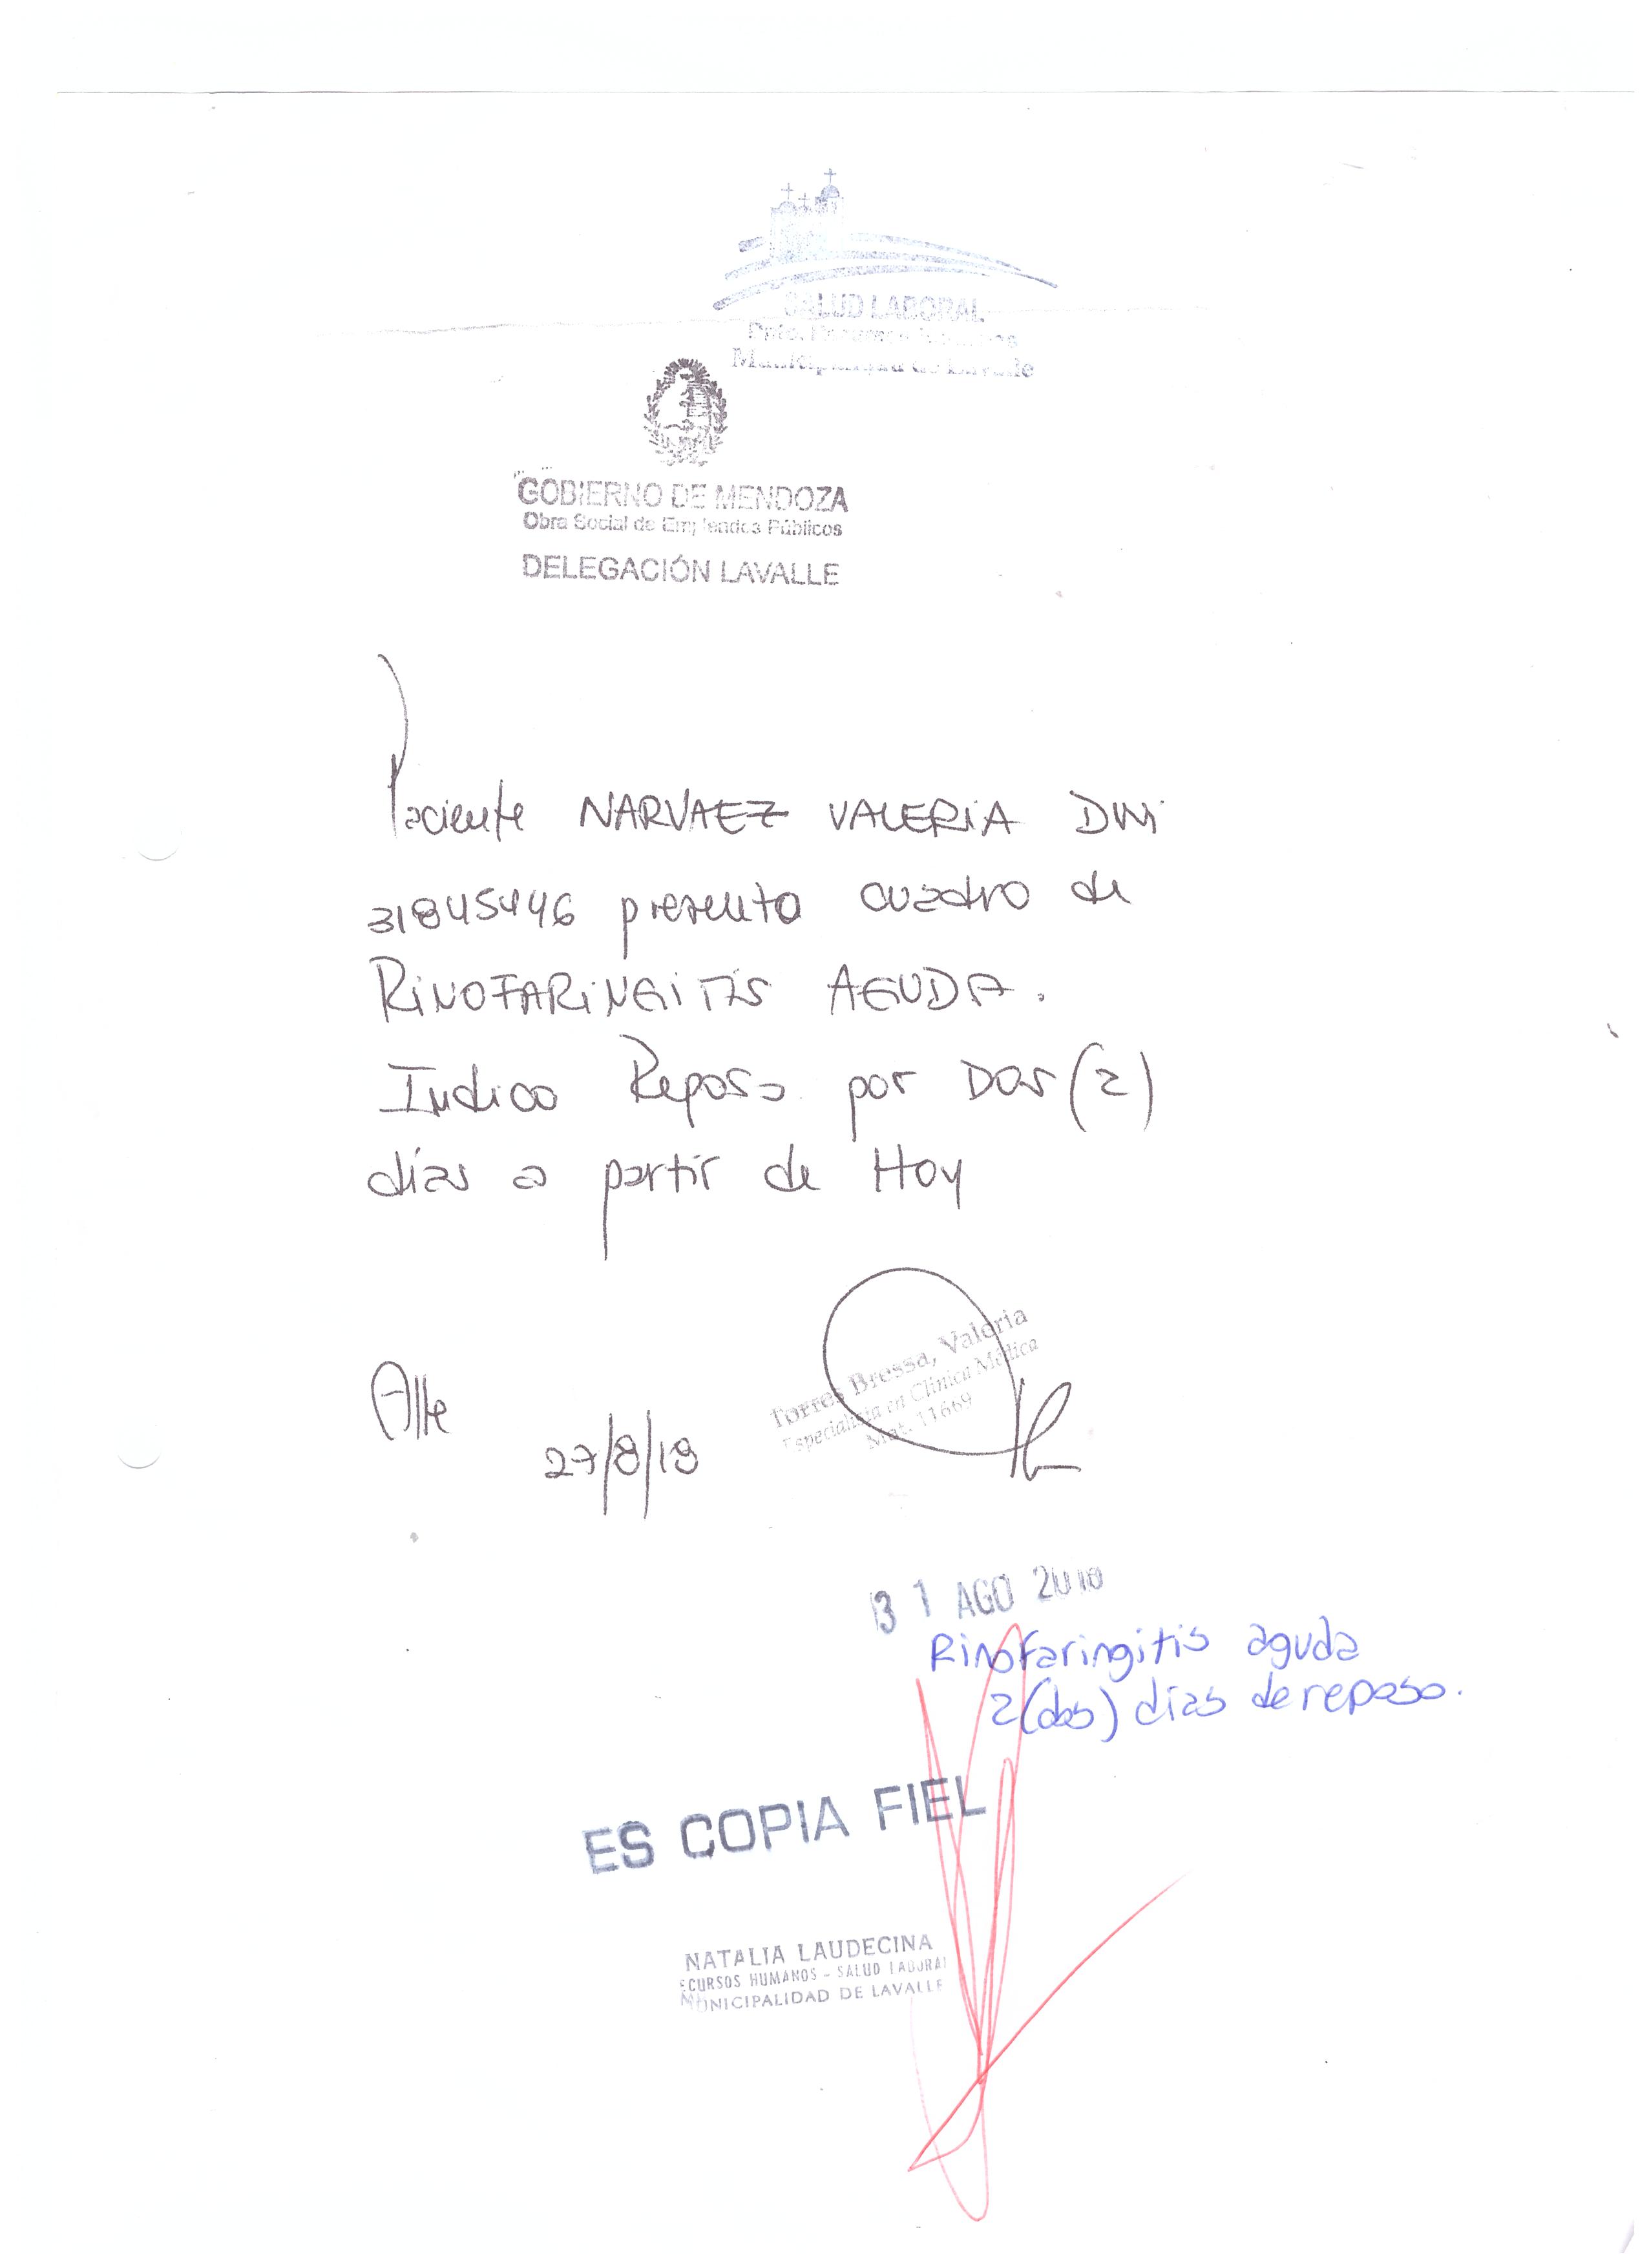 SALUD LABORAL
Municipalidad de Lavalle
GOBIERNO DE MENDOZA
Obra Social de Empleados Públicos
DELEGACIÓN LAVALLE
Paciente NARVAEZ VALERIA DNI
31845446 presenta cuadro de
RINOFARINGITIS AGUDA.
Indico Reposo por DOS (2)
días a partir de Hoy
Atte
27/8/18
Torres Bressa, Valeria
Especialista en Clínica Médica
Mat. 11669
31 AGO 2018
Rinofaringitis aguda
2(dos) días de reposo.
ES COPIA FIEL
NATALIA LAUDECINA
ECURSOS HUMANOS - SALUD LABORAL
MUNICIPALIDAD DE LAVALLE